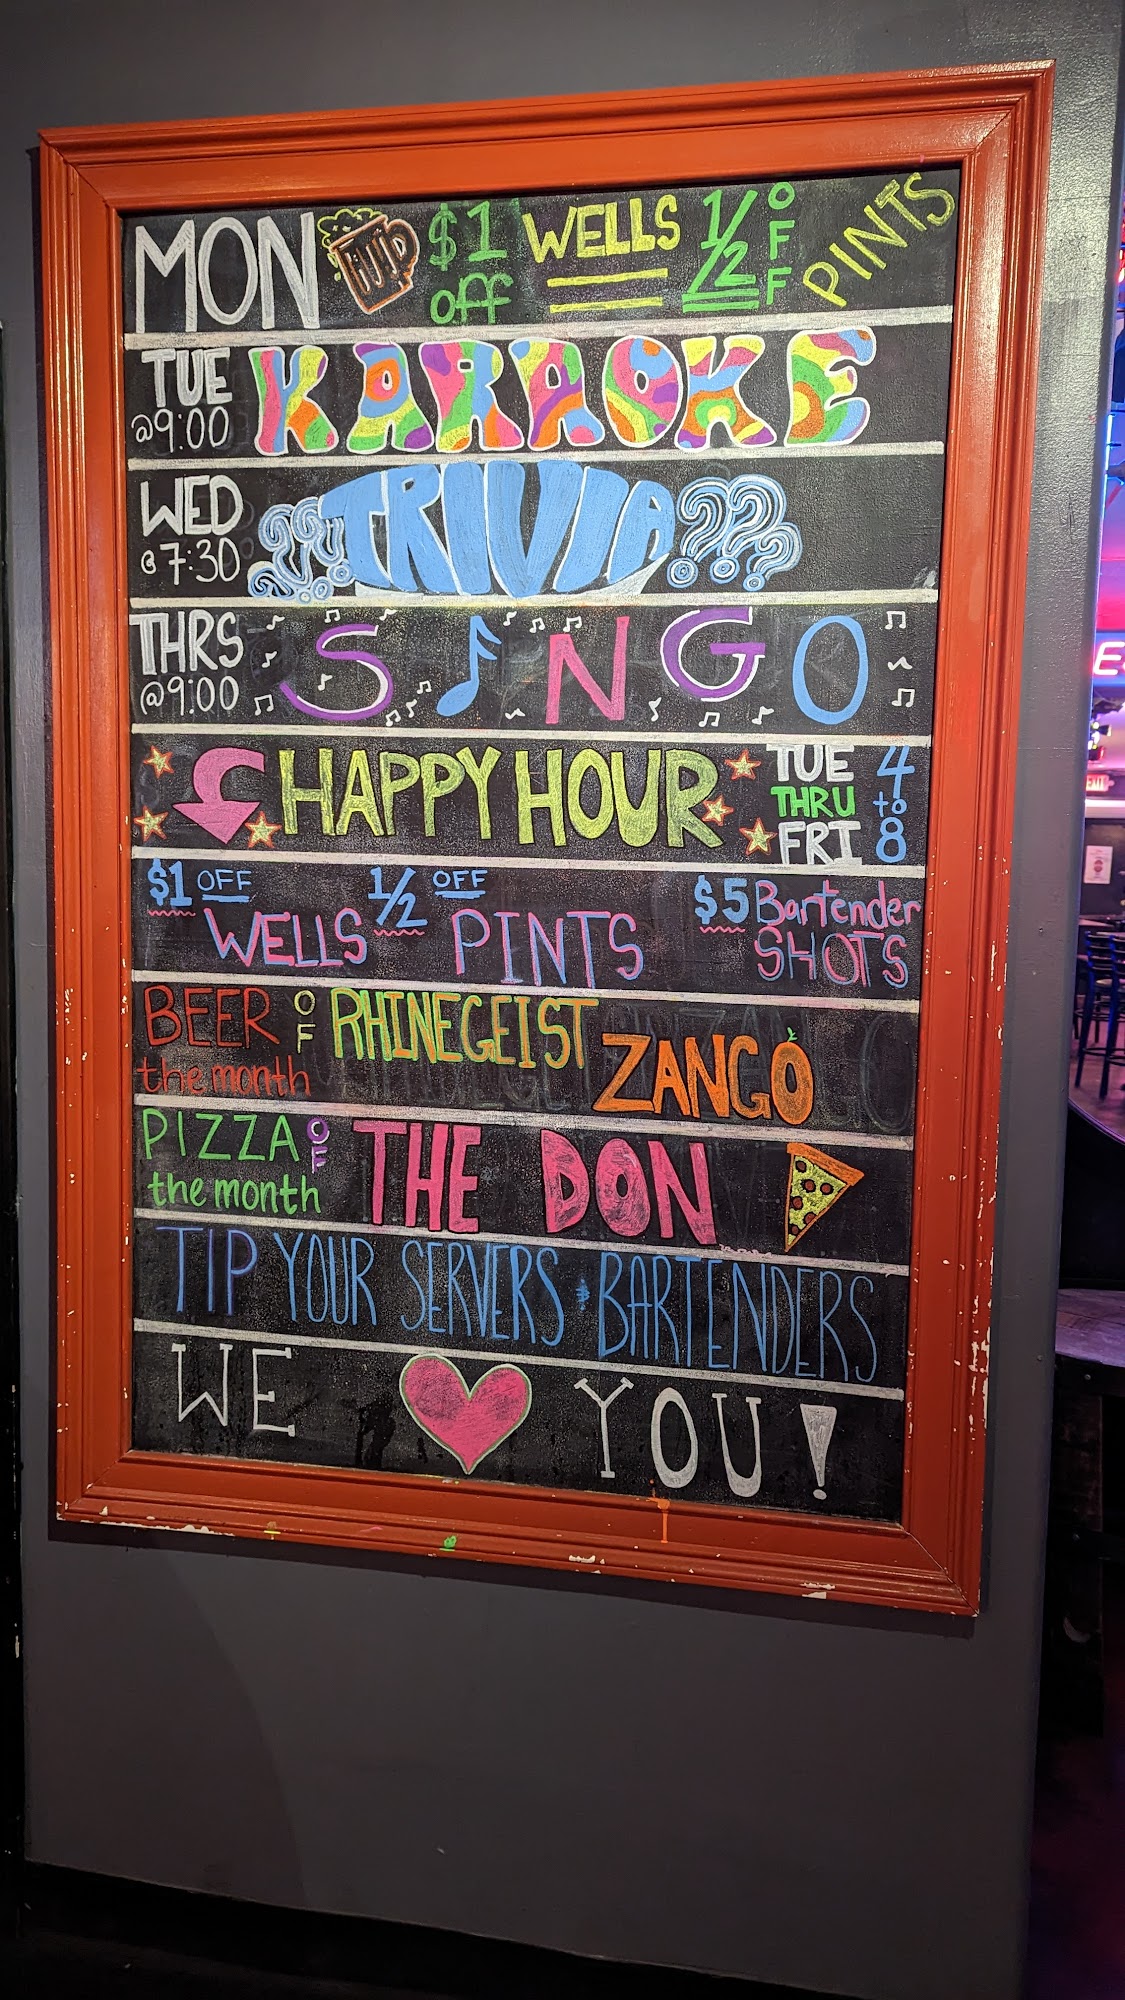 MON $1 off WELLS 1/2 OFF PINTS
TUE @9:00 KARAOKE
WED @7:30 ??? TRIVIA ???
THRS @9:00 SINGO
HAPPY HOUR TUE THRU FRI 4 to 8
$1 OFF WELLS 1/2 OFF PINTS $5 Bartender SHOTS
BEER OF the month RHINEGEIST ZANGO
PIZZA OF the month THE DON
TIP YOUR SERVERS & BARTENDERS
WE ♥ YOU!
EXIT